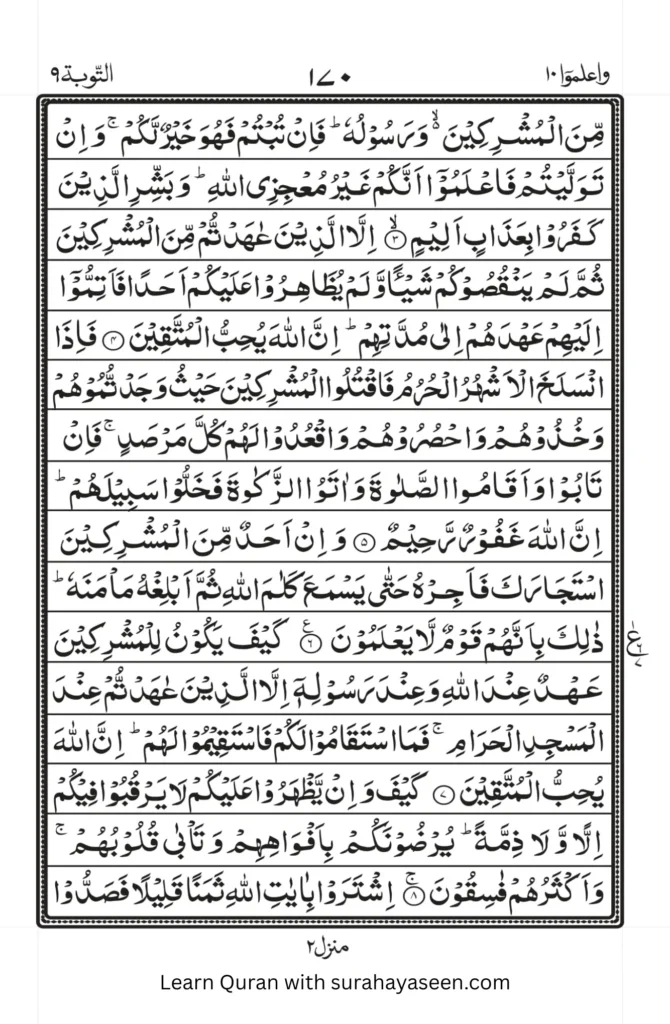 واعلموۤا ١٠ ١٧٠ التّوبة ٩
مِّنَ الْمُشْرِكِيْنَ ۙ۬ وَرَسُوْلُهٗ ؕ فَاِنْ تُبْتُمْ فَهُوَ خَيْرٌ لَّكُمْ ۚ وَ اِنْ
تَوَلَّيْتُمْ فَاعْلَمُوْۤا اَنَّكُمْ غَيْرُ مُعْجِزِى اللهِ ؕ وَ بَشِّرِ الَّذِيْنَ
كَفَرُوْا بِعَذَابٍ اَلِيْمٍ ۙ﴿۳﴾ اِلَّا الَّذِيْنَ عٰهَدْتُّمْ مِّنَ الْمُشْرِكِيْنَ
ثُمَّ لَمْ يَنْقُصُوْكُمْ شَيْـًٔا وَّلَمْ يُظَاهِرُوْا عَلَيْكُمْ اَحَدًا فَاَتِمُّوْۤا
اِلَيْهِمْ عَهْدَهُمْ اِلٰى مُدَّتِهِمْ ؕ اِنَّ اللهَ يُحِبُّ الْمُتَّقِيْنَ ﴿۴﴾ فَاِذَا
انْسَلَخَ الْاَشْهُرُ الْحُرُمُ فَاقْتُلُوا الْمُشْرِكِيْنَ حَيْثُ وَجَدْتُّمُوْهُمْ
وَخُذُوْهُمْ وَاحْصُرُوْهُمْ وَاقْعُدُوْا لَهُمْ كُلَّ مَرْصَدٍ ۚ فَاِنْ
تَابُوْا وَ اَقَامُوا الصَّلٰوةَ وَ اٰتَوُا الزَّكٰوةَ فَخَلُّوْا سَبِيْلَهُمْ ؕ
اِنَّ اللهَ غَفُوْرٌ رَّحِيْمٌ ﴿۵﴾ وَ اِنْ اَحَدٌ مِّنَ الْمُشْرِكِيْنَ
اسْتَجَارَكَ فَاَجِرْهُ حَتّٰى يَسْمَعَ كَلٰمَ اللهِ ثُمَّ اَبْلِغْهُ مَاْمَنَهٗ ؕ
ذٰلِكَ بِاَنَّهُمْ قَوْمٌ لَّا يَعْلَمُوْنَ ﴿۶﴾ع كَيْفَ يَكُوْنُ لِلْمُشْرِكِيْنَ
عَهْدٌ عِنْدَ اللهِ وَعِنْدَ رَسُوْلِهٖۤ اِلَّا الَّذِيْنَ عٰهَدْتُّمْ عِنْدَ
الْمَسْجِدِ الْحَرَامِ ۚ فَمَا اسْتَقَامُوْا لَكُمْ فَاسْتَقِيْمُوْا لَهُمْ ؕ اِنَّ اللهَ
يُحِبُّ الْمُتَّقِيْنَ ﴿۷﴾ كَيْفَ وَ اِنْ يَّظْهَرُوْا عَلَيْكُمْ لَا يَرْقُبُوْا فِيْكُمْ
اِلًّا وَّ لَا ذِمَّةً ؕ يُرْضُوْنَكُمْ بِاَفْوَاهِهِمْ وَ تَاْبٰى قُلُوْبُهُمْ ۚ
وَاَكْثَرُهُمْ فٰسِقُوْنَ ۚ﴿۸﴾ اِشْتَرَوْا بِاٰيٰتِ اللهِ ثَمَنًا قَلِيْلًا فَصَدُّوْا
منزل ٢
Learn Quran with surahayaseen.com